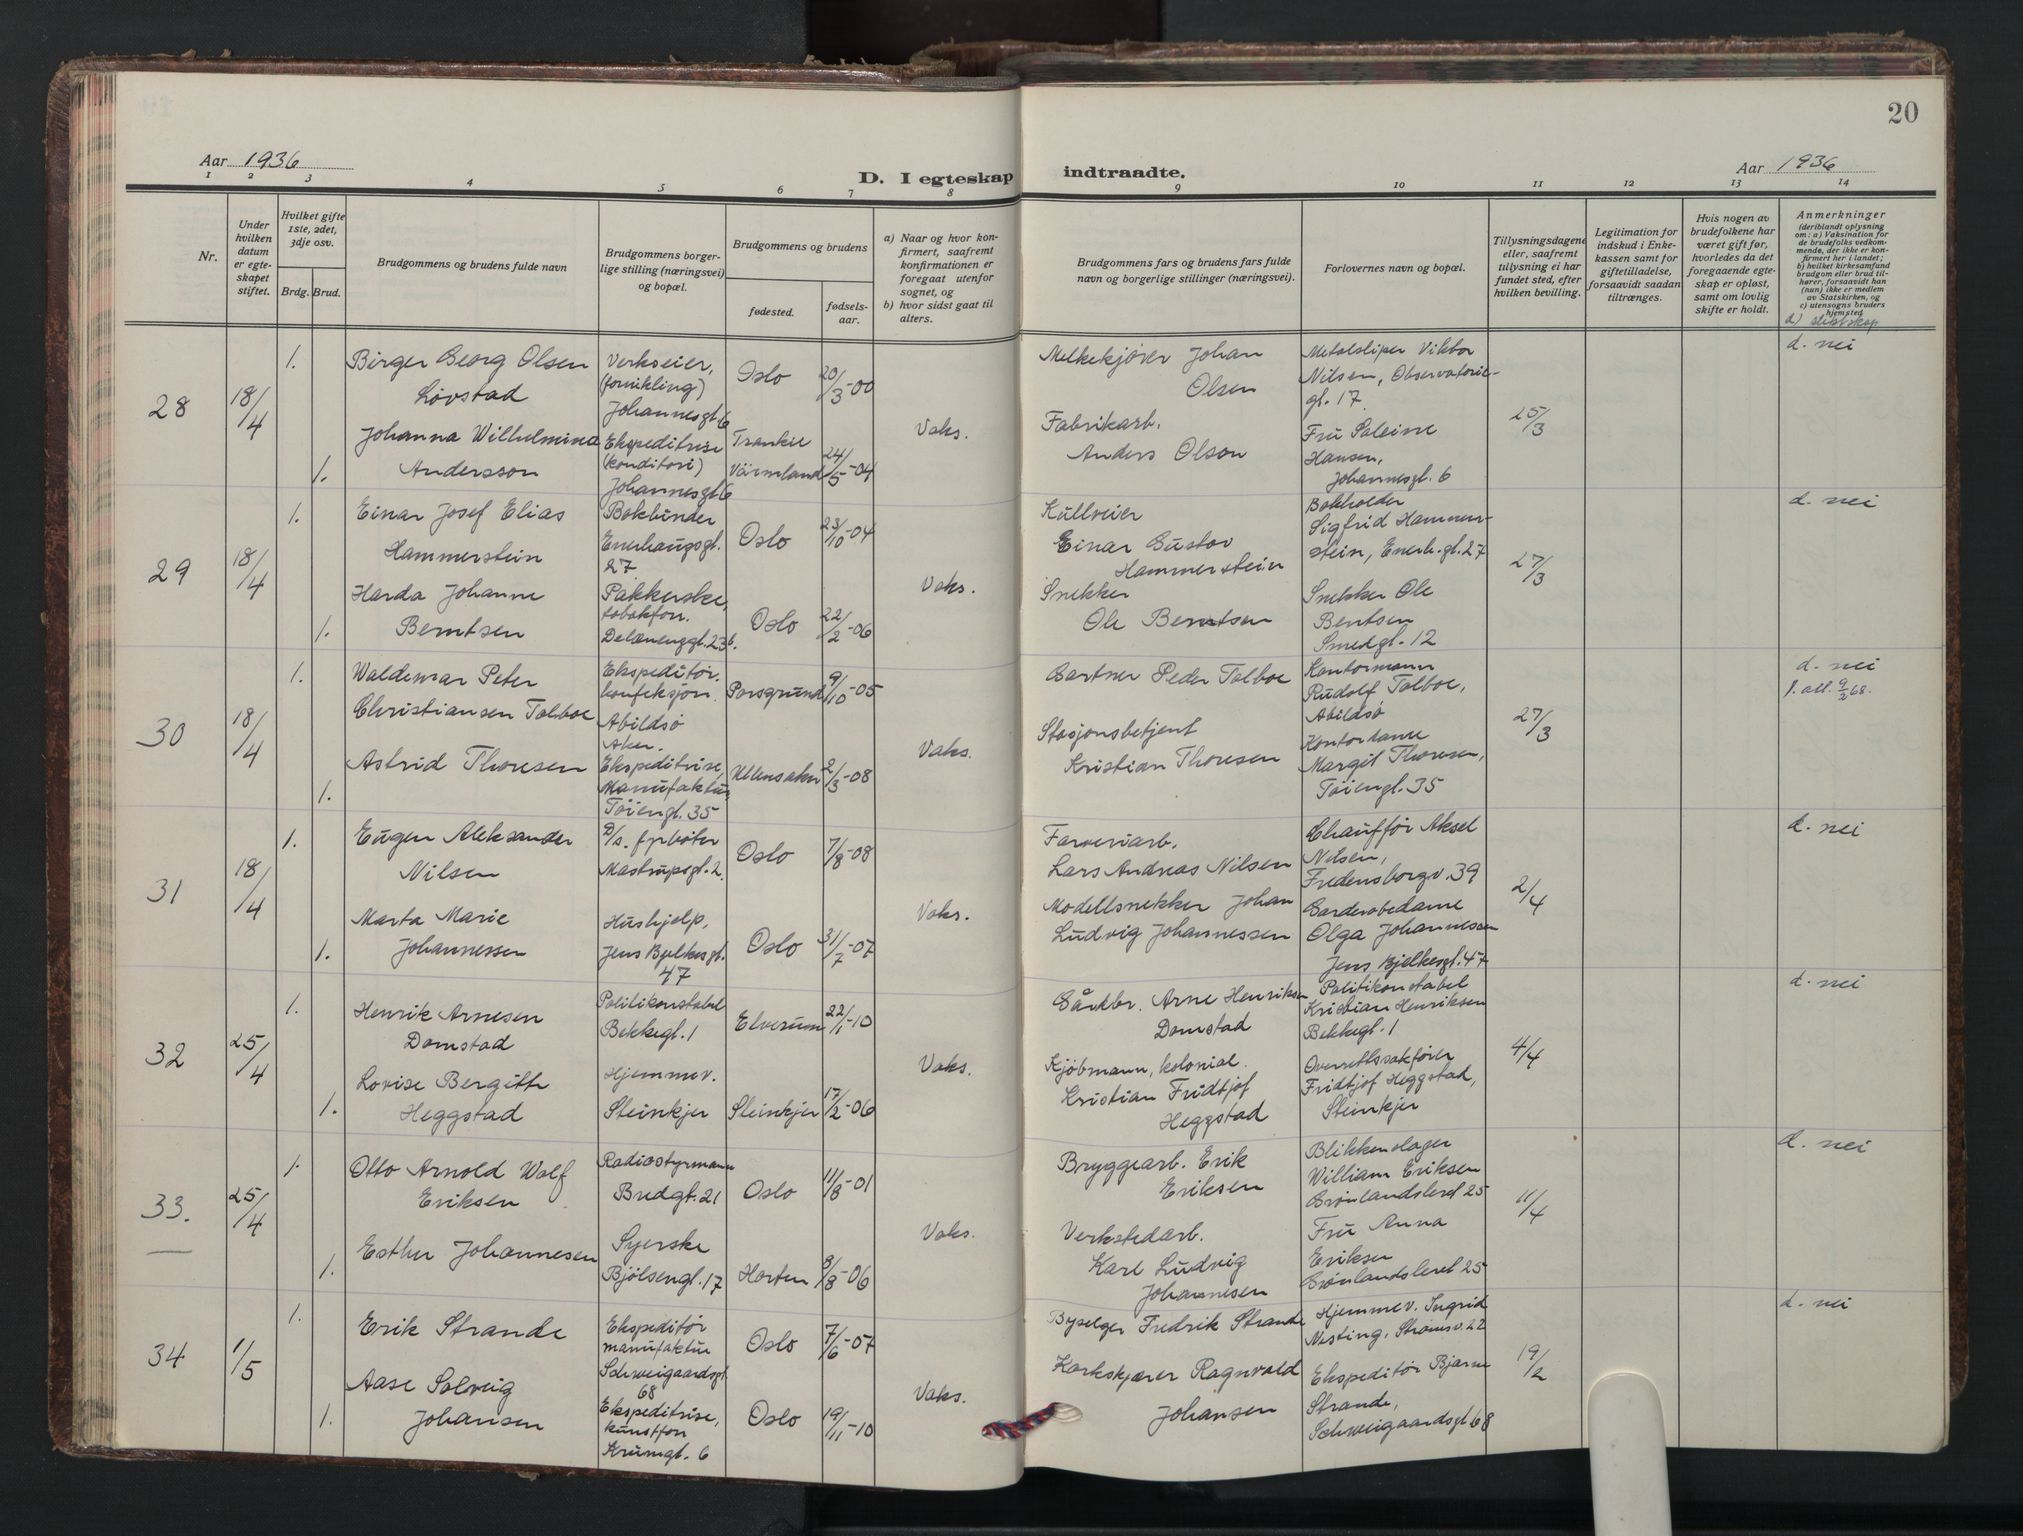 20
Aar 1936
D. I egteskap indtraadte.
Aar 1936
1 2 3 4 5 6 7 8 9 10 11 12 13 14
Nr.
Under
hvilken
datum
er egte-
skapet
stiftet.
Hvilket gifte
1ste, 2det,
3dje osv.
Brdg. Brud.
Brudgommens og brudens fulde navn
Brudgommens borger-
lige stilling (næringsvei)
og bopæl.
Brudgommens og brudens
fødested.
fødsels-
aar.
a) Naar og hvor kon-
firmert, saafremt
konfirmationen er
foregaat utenfor
sognet, og
b) hvor sidst gaat til
alters.
Brudgommens fars og brudens fars fulde
navn og borgerlige stillinger (næringsvei).
Forlovernes navn og bopæl.
Tillysningsdagene
eller, saafremt
tillysning ei har
fundet sted, efter
hvilken bevilling.
Legitimation for
indskud i Enke-
kassen samt for
giftetilladelse,
forsaavidt saadan
tiltrænges.
Hvis nogen av
brudefolkene har
været gift før,
hvorledes da det
foregaaende egte-
skap er opløst,
samt om lovlig
skifte er holdt.
Anmerkninger
(deriblandt oplysning
om: a) Vaksination for
de brudefolks vedkom-
mende, der ikke er kon-
firmert her i landet;
b) hvilket kirkesamfund
brudgom eller brud til-
hører, forsaavidt han
(hun) ikke er medlem
av Statskirken, og
c) utensogns bruders
hjemsted
d) slektskap
28
18/4
1.
Birger Georg Olsen
Lövstad
Verkseier,
(fornikling)
Johannesgt. 6
Oslo
20/3-00
1.
Johanna Wilhelmina
Andersson
Ekspeditrise
(konditori)
Johannesgt. 6
Värmland
24/5-04
Vaks.
Melkekjører Johan
Olsen
Fabrikarb.
Anders Olson
Metalsliper Viktor
Nilsen, Observatorie-
gt. 17
Fru
Hansen,
Johannesgt. 6
25/3
d. nei
29
18/4
1.
Einar Josef Elias
Hammerstein
Bokbinder
Enerhaugsgt.
27
Oslo
23/10-04
1.
Harda Johanne
Berntsen
Pakkerske,
tobakfon.
Oslo
22/2-06
Vaks.
Einar Gustav
Hammerstein
Snekker
Ole Berntsen
Bokholder
Sigfrid Hammer-
stein, Enerh.gt. 27
Snekker Ole
Bentsen
Smedgt. 12
27/3
d. nei
30
18/4
1.
Waldemar Peter
Christiansen Talboe
Ekspeditør.
konfeksjon
Abildsö
Aker.
Porsgrund
9/10-05
1.
Astrid Thoresen
Ekspeditrise,
Manufaktur
Töiengt. 35
Ullensaker
2/3-08
Vaks.
Gartner Peder Talboe
Stasjonsbetjent
Kristian Thoresen
Kontormann
Rudolf Talboe,
Abildsö
Kontordame
Margit Thoresen,
Töiengt. 35
27/3
d. nei
31
18/4
1.
Eugen Aleksander
Nilsen
D/s. fyrböter
Mastrupsgt. 2.
Oslo
7/8-08
1.
Marta Marie
Johannessen
Hushjelp,
Jens Bjelkesgt.
47
Oslo
31/7-07
Vaks.
Farveriarb.
Lars Andreas Nilsen
Modellsnekker Johan
Ludvig Johannessen
Chaufför Aksel
Nilsen,
Fredensborgv. 39
Garderobedame
Olga Johannessen
Jens Bjelkesgt. 47
2/4
d. nei
32
25/4
1.
Henrik Arnesen
Domstad
Politikonstabel
Bekkegt. 1
Elverum
22/1-10
1.
Lovise Bergitte
Heggstad
Hjemmev.
Steinkjer
Steinkjer
17/2-06
Vaks.
Gårdbr. Arne Henriksen
Domstad
Kjöbmann, kolonial.
Kristian Fridtjof
Heggstad
Politikonstabel
Kristian Henriksen
Bekkegt. 1
Overrettssakfører
Fridtjof Heggstad,
Steinkjer
4/4
d. nei
33.
25/4
1.
Otto Arnold Wolf
Eriksen
Radiostyrmann
Bredgt. 21
Oslo
11/8-01
1.
Esther Johannesen
Syerske
Bjölsengt. 17
Horten
8/8-06
Vaks.
Bryggearb. Erik
Eriksen
Verkstedarb.
Karl Ludvig
Johannesen
Blikkenslager
William Eriksen
Grönlandsleret 25
Fru Anna
Eriksen
Grönlandsleret 25
11/4
d. nei
34
1/5
1.
Erik Strande
Ekspeditör
manufaktur
Schweigaardsgt.
68
Oslo
7/6-07
1.
Aase Solveig
Johansen
Ekspeditrise,
kunstfon
Krumgt. 6
Oslo
19/11-10
Vaks.
Byselger Fredrik Strande
Korkskjærer Ragnvald
Johansen
Hjemmev. Ingrid
Nesting, Strömsv. 22
Ekspeditör Bjarne
Strande,
Schweigaardsgt 68
19/2
d. nei